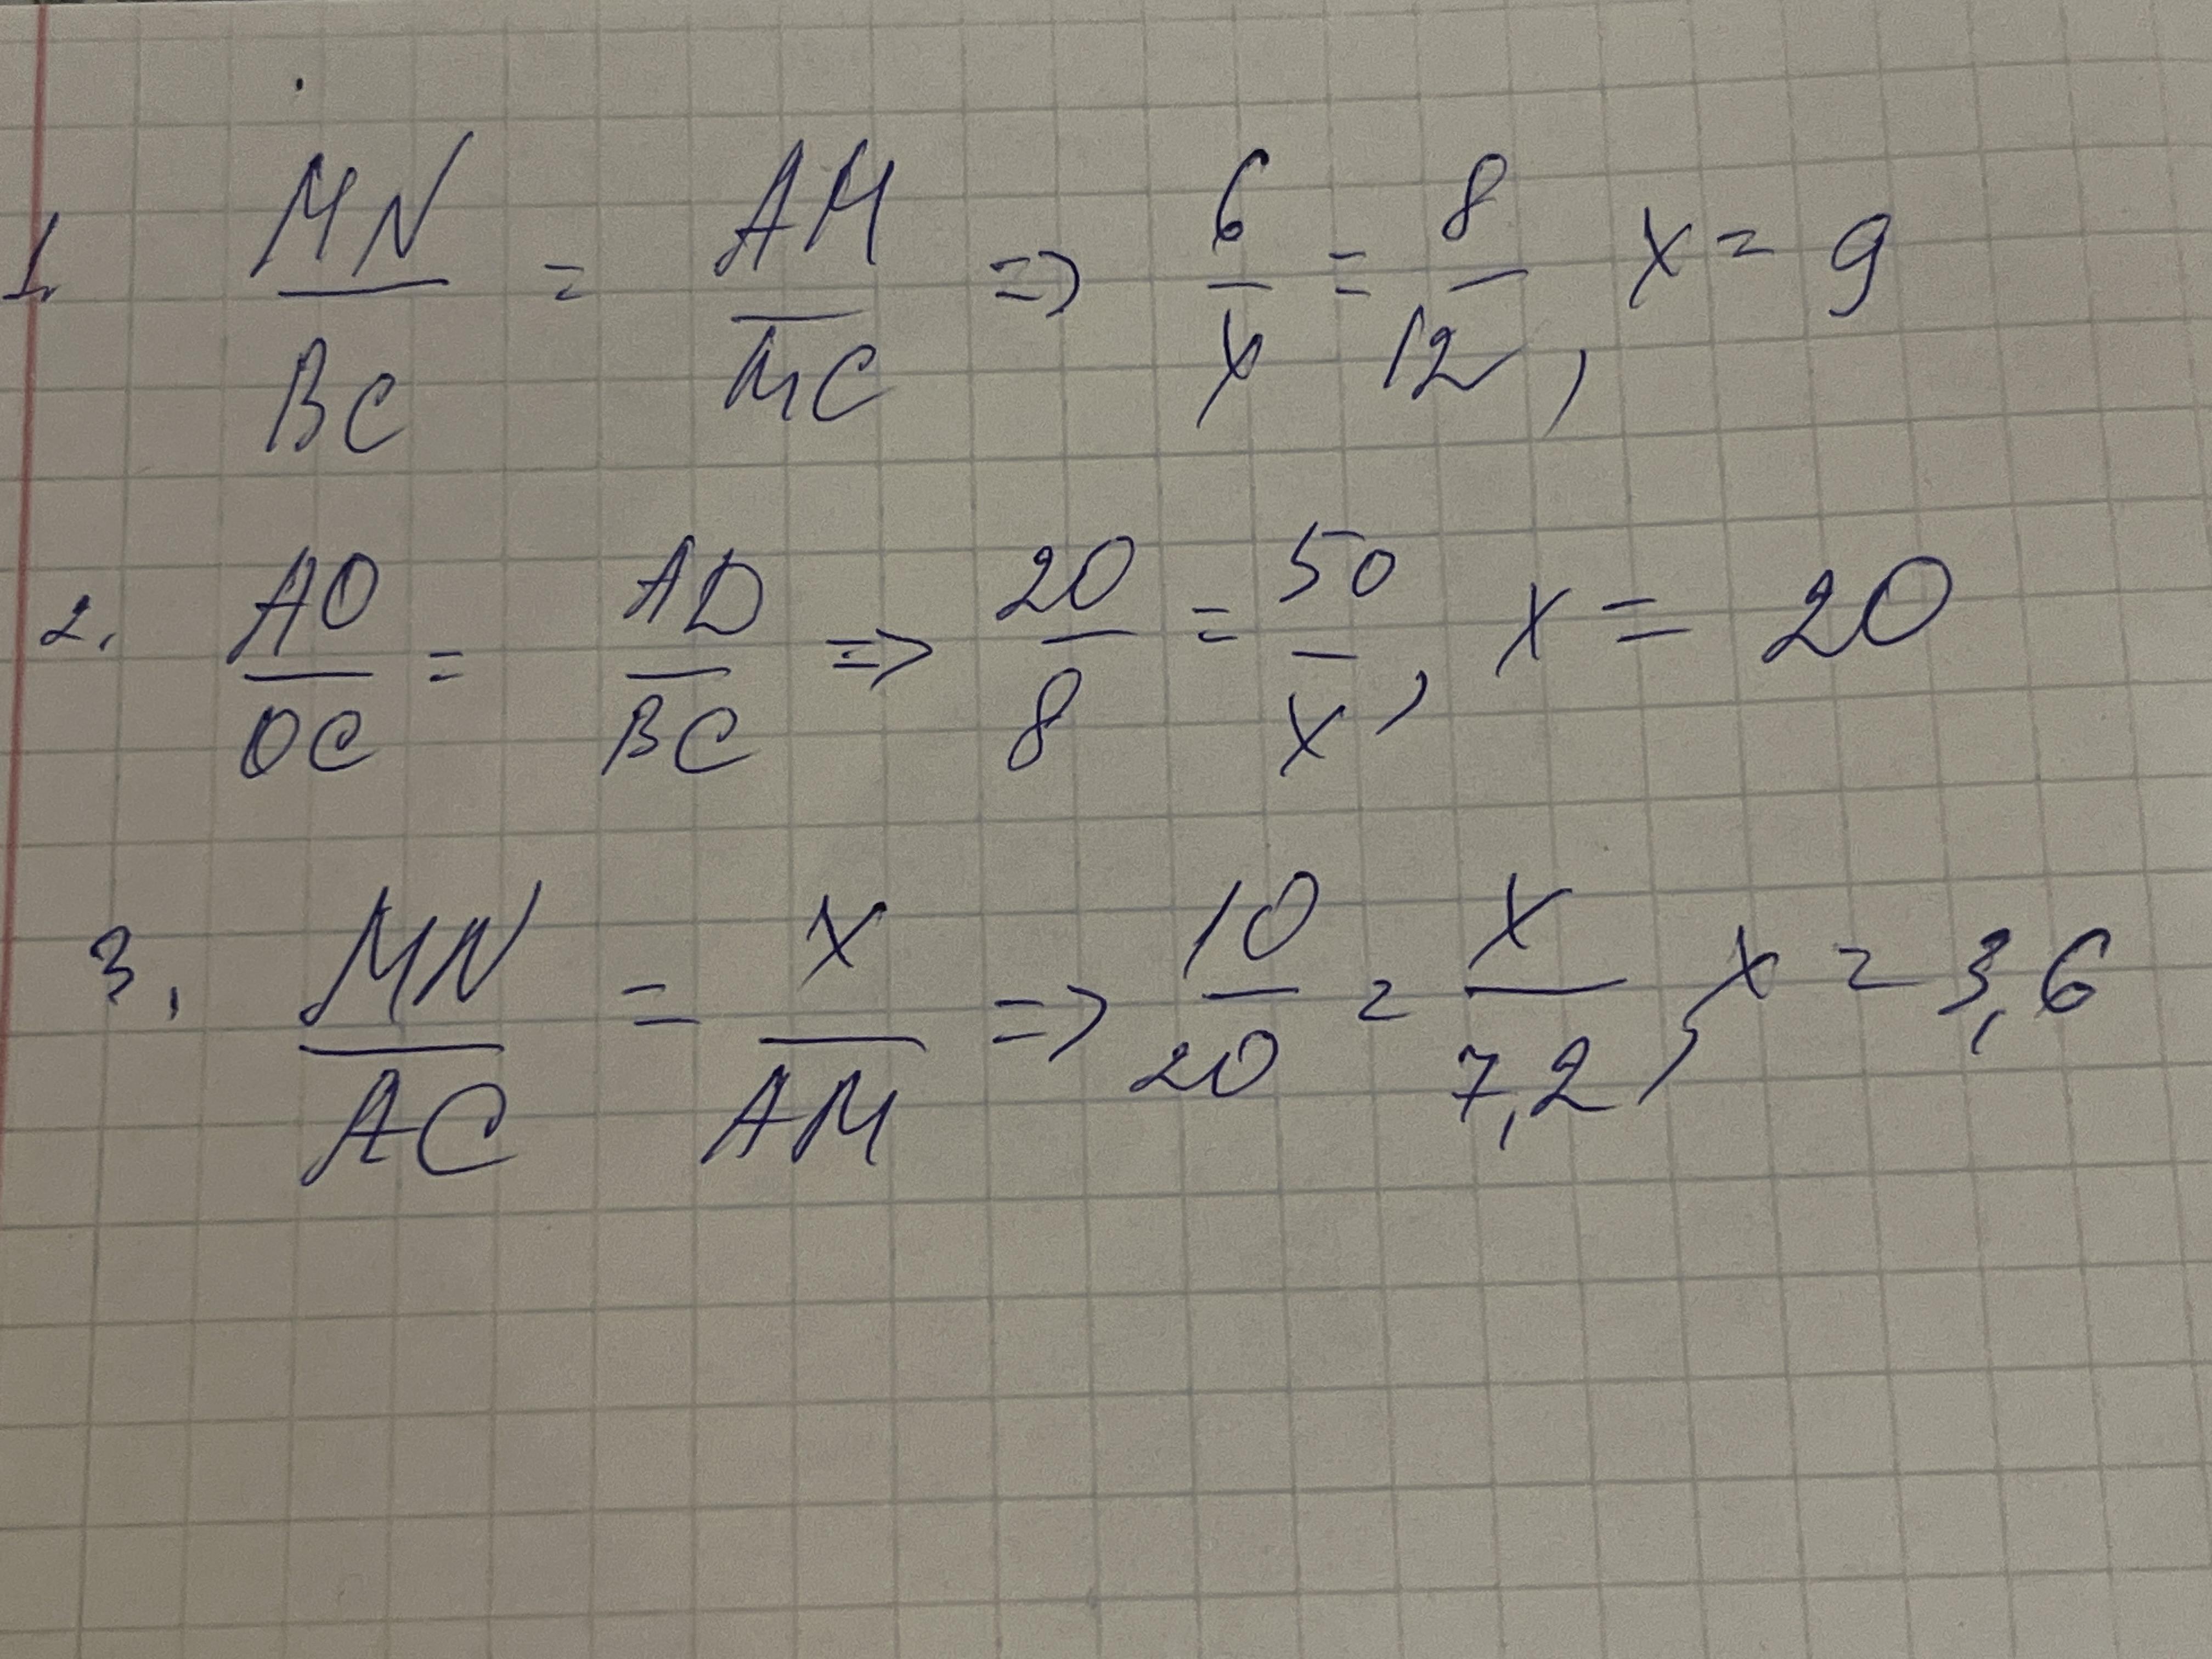 1. MN/BC = AM/MC => 6/x = 8/12, x = 9
2. AO/OC = AD/BC => 20/8 = 50/x, x = 20
3. MN/AC = x/AM => 10/20 = x/7,2, x = 3,6